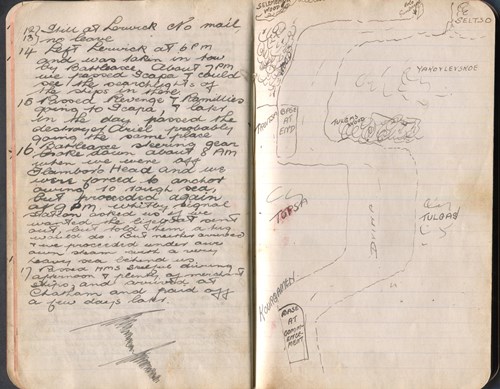 12) Still at Lerwick No mail
13) no leave
14 Left Lerwick at 6 PM
and was taken in tow
by Battleaxe. About 7 AM
we passed Scapa & could
see the searchlights of
the ships in there
15 Passed Revenge & Ramillies
going to Scapa & later
in the day passed the
destroyer Ariel probably
going the same place
16 Battleaxe steering gear
broke down about 8 AM
when we were off
Flambro Head and we
were forced to anchor
owing to rough sea,
but proceeded again
at 9 PM. Whitby signal
station asked us if we
wanted the lifeboat sent
out, but told them a tug
would do. But neither arrived
& we proceeded under our
own steam with a very
heavy sea behind us
17 Passed HMS during
afternoon & plenty of merchant
ships, and arrived at
Chatham and paid off
a few days later
SELTSO
YANDYLERSKOE
TULGAS
BASE
AT
END
TOPSA
DWINA
TULGAS
KOURGOMEN
BASE
AT
COMM-
ENCE-
MENT